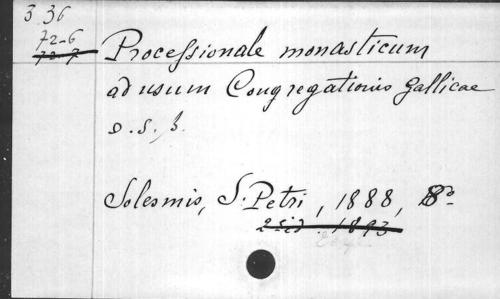 3.36
72-6
72-7
Processionale monasticum
ad usum Congregationis Gallicae
o.s.b.
Solesmis, S. Petri, 1888, 8º.
2 eid. 1893